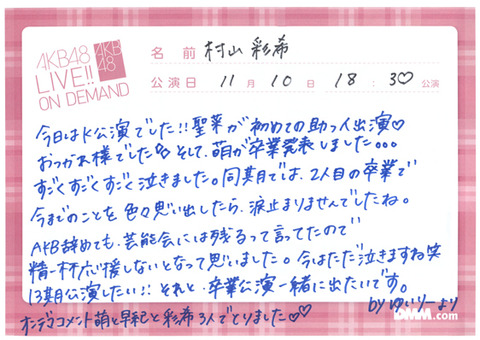 AKB48
LIVE!!
ON DEMAND
AKB
48
名 前 村山 彩希
公演日 11 月 10 日 18 : 30 公演
今日はK公演でした!!聖菜が初めての助っ人出演♡
おつかれ様でした そして、萌が卒業発表しました。。。
すごくすごくすごく泣きました。同期では、2人目の卒業で
今までのことを色々思い出したら、涙止まりませんでしたね。
AKB辞めても、芸能会には残るって言ってたので
精一杯応援しないとなって思いました。今はただ泣きますね笑
13期公演したい!! それと、卒業公演一緒に出たいです。
by ゆいりーより
オンデマコメント萌と早紀と彩希3人でとりました♡♡
DMM.com